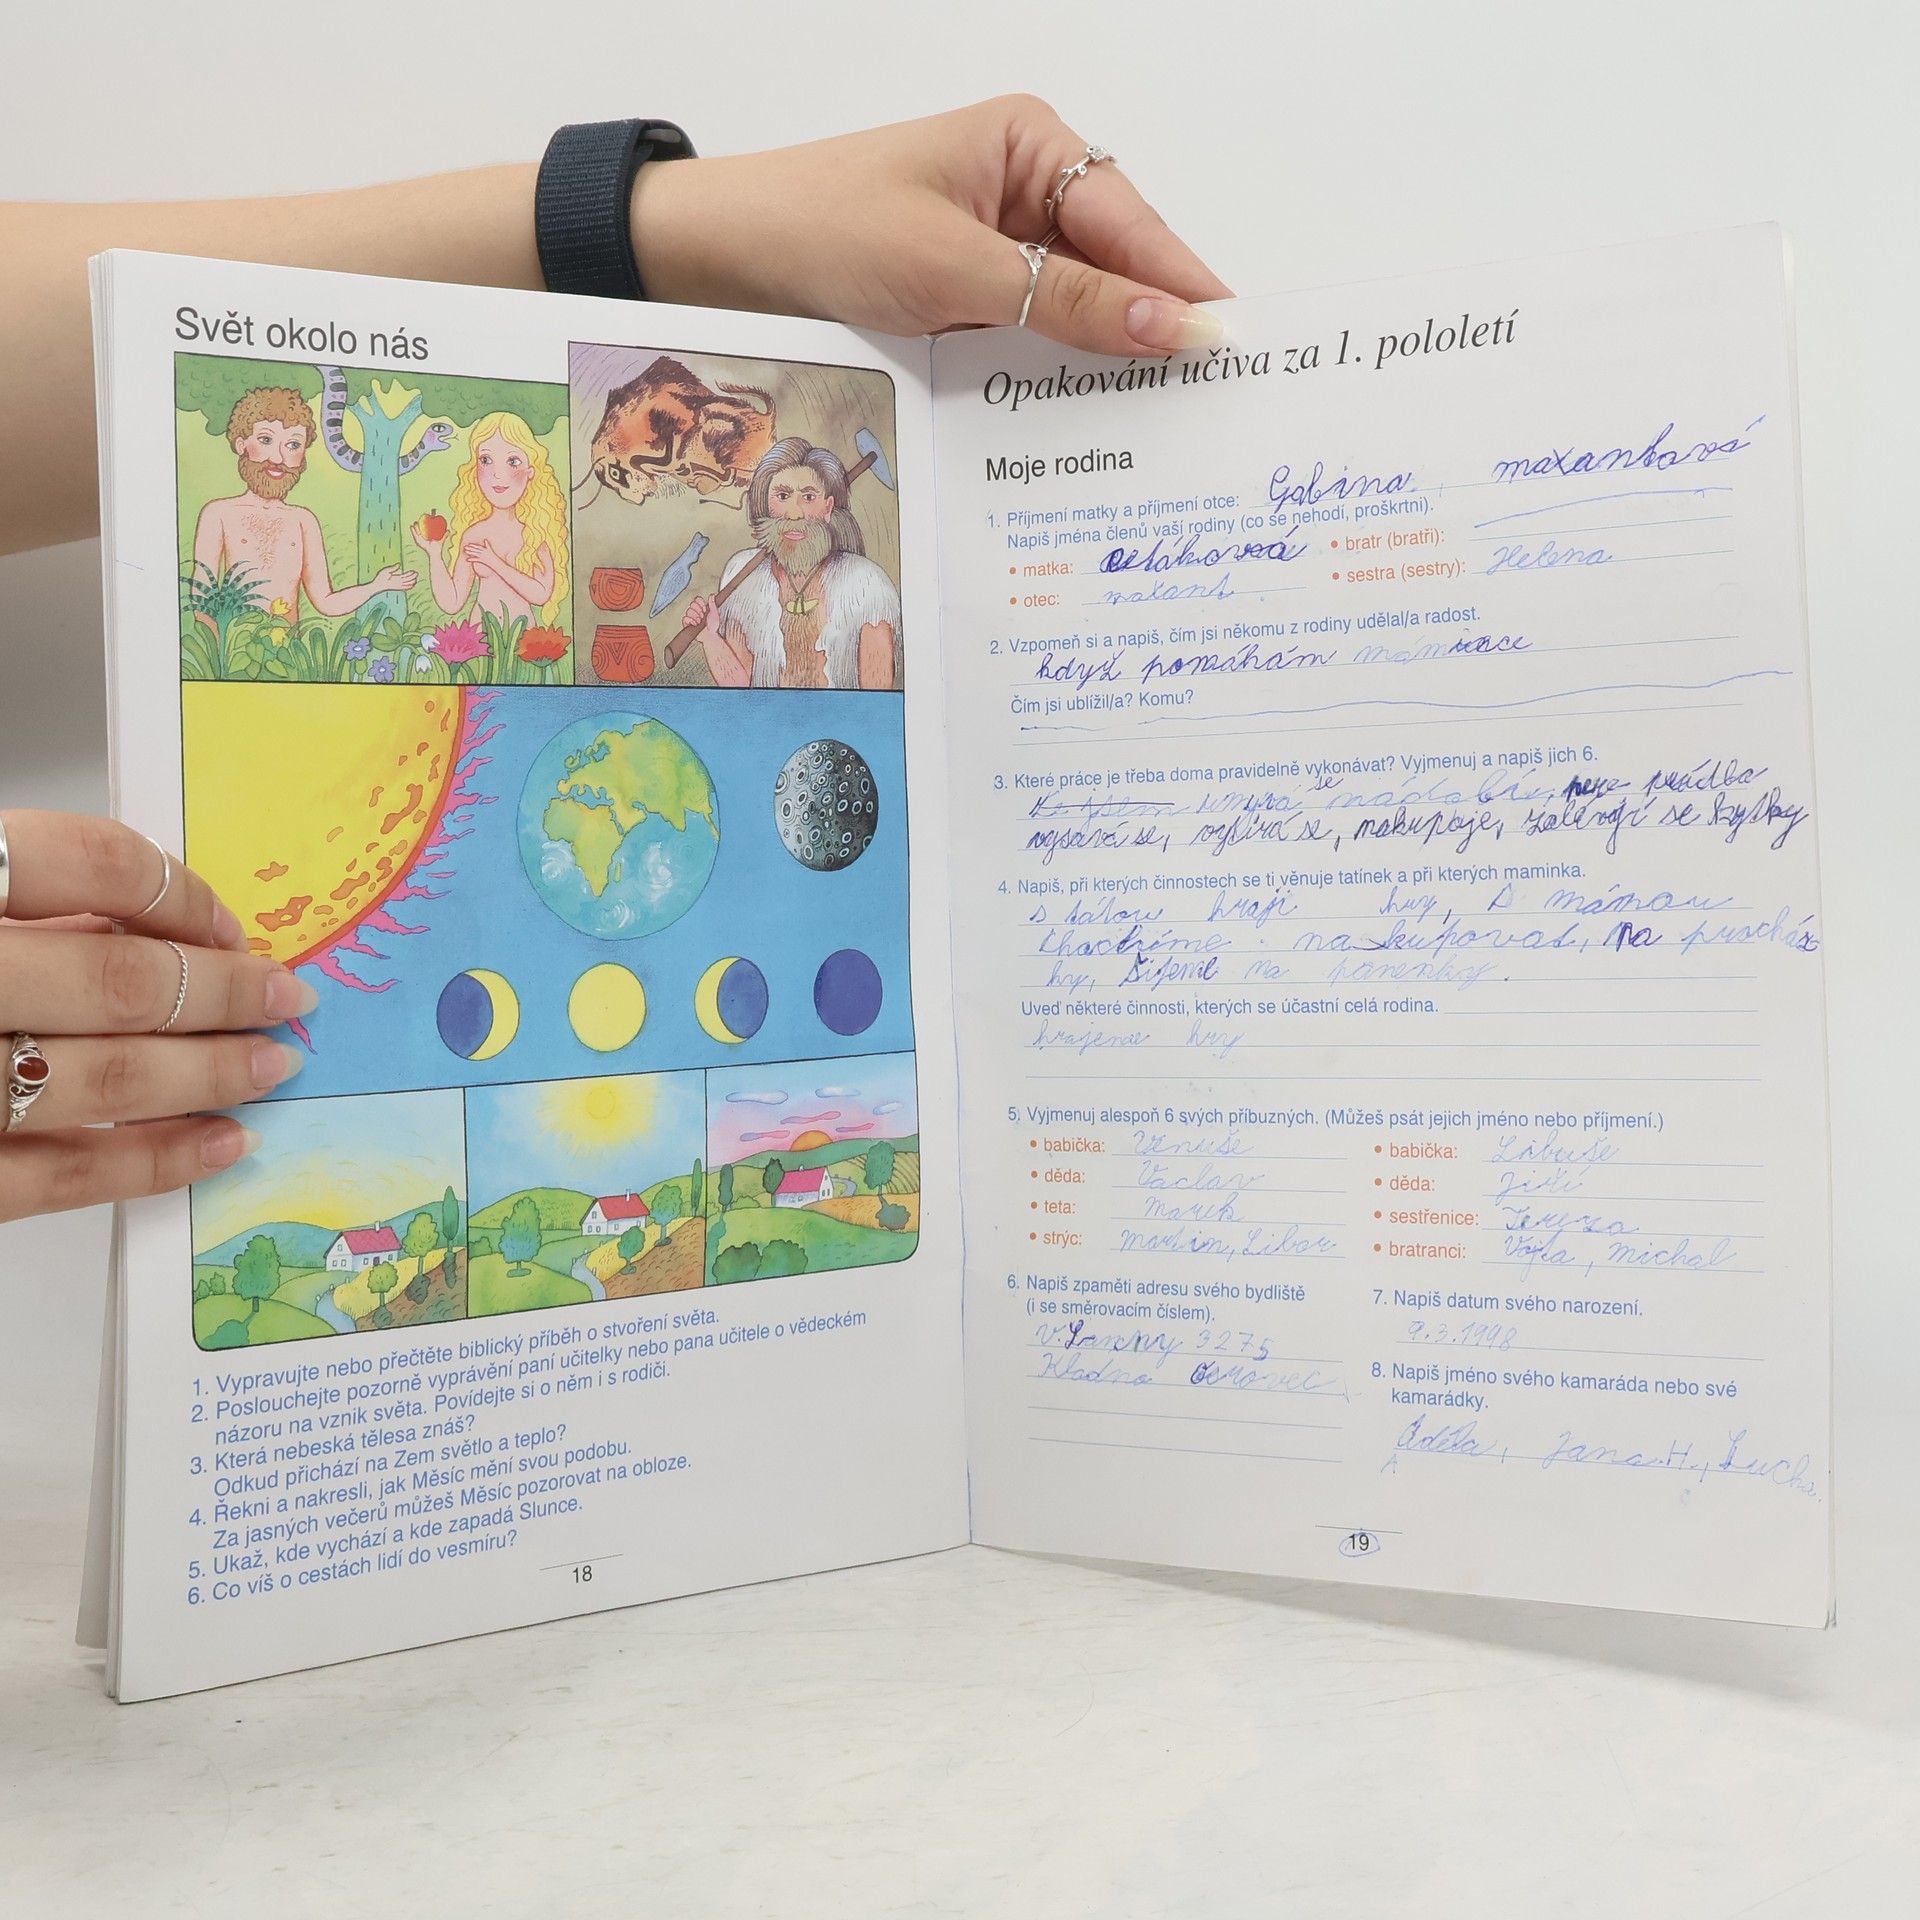 Svět okolo nás
1. Vypravujte nebo přečtěte biblický příběh o stvoření světa.
2. Poslouchejte pozorně vyprávění paní učitelky nebo pana učitele o vědeckém
názoru na vznik světa. Povídejte si o něm i s rodiči.
3. Která nebeská tělesa znáš?
Odkud přichází na Zem světlo a teplo?
4. Řekni a nakresli, jak Měsíc mění svou podobu.
Za jasných večerů můžeš Měsíc pozorovat na obloze.
5. Ukaž, kde vychází a kde zapadá Slunce.
6. Co víš o cestách lidí do vesmíru?
18
Opakování učiva za 1. pololetí
Moje rodina
1. Příjmení matky a příjmení otce: Gabina
Napiš jména členů vaší rodiny (co se nehodí, proškrtni).
• matka:
• bratr (bratři):
• otec:
• sestra (sestry): Helena
2. Vzpomeň si a napiš, čím jsi někomu z rodiny udělal/a radost.
když pomáhám
Čím jsi ublížil/a? Komu?
3. Které práce je třeba doma pravidelně vykonávat? Vyjmenuj a napiš jich 6.
umyvá se nádobí, pere prádlo
vysává se, vytírá se, nakupuje, zalévají se kytky
4. Napiš, při kterých činnostech se ti věnuje tatínek a při kterých maminka.
s tátou hraji hry, s mámou
chodíme nakupovat, na procház
ky, šijeme na panenky.
Uveď některé činnosti, kterých se účastní celá rodina.
hrajeme hry
5. Vyjmenuj alespoň 6 svých příbuzných. (Můžeš psát jejich jméno nebo příjmení.)
• babička: Venuše
• babička: Libuše
• děda: Václav
• děda: Jiří
• teta: Marek
• sestřenice: Tereza
• strýc: Martin, Libor
• bratranci: Vojta, Michal
6. Napiš zpaměti adresu svého bydliště
(i se směrovacím číslem).
3275
Kladno
7. Napiš datum svého narození.
9.3.1998
8. Napiš jméno svého kamaráda nebo své
kamarádky.
Adéla, Jana H.,
A
19